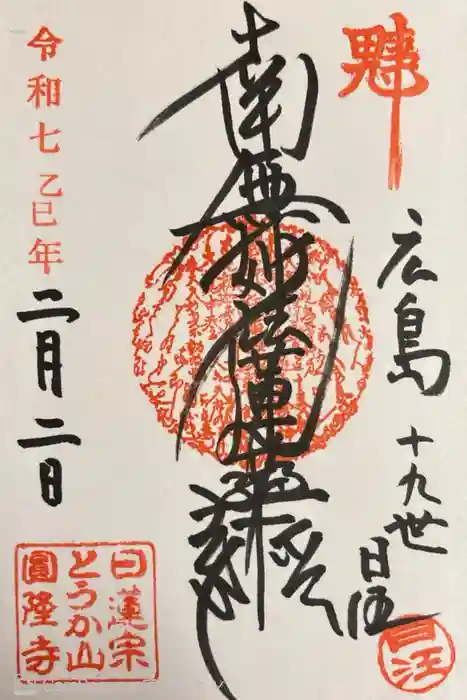 広島
十九世
日伍
南無妙法蓮華経
令和七乙巳年
二月二日
日蓮宗
とうか山
圓隆寺